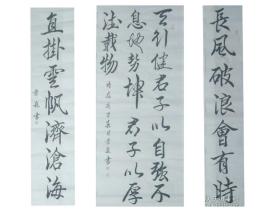 長風破浪會有時
天行健君子以自強不
息地勢坤君子以厚
德載物
直掛雲帆濟滄海